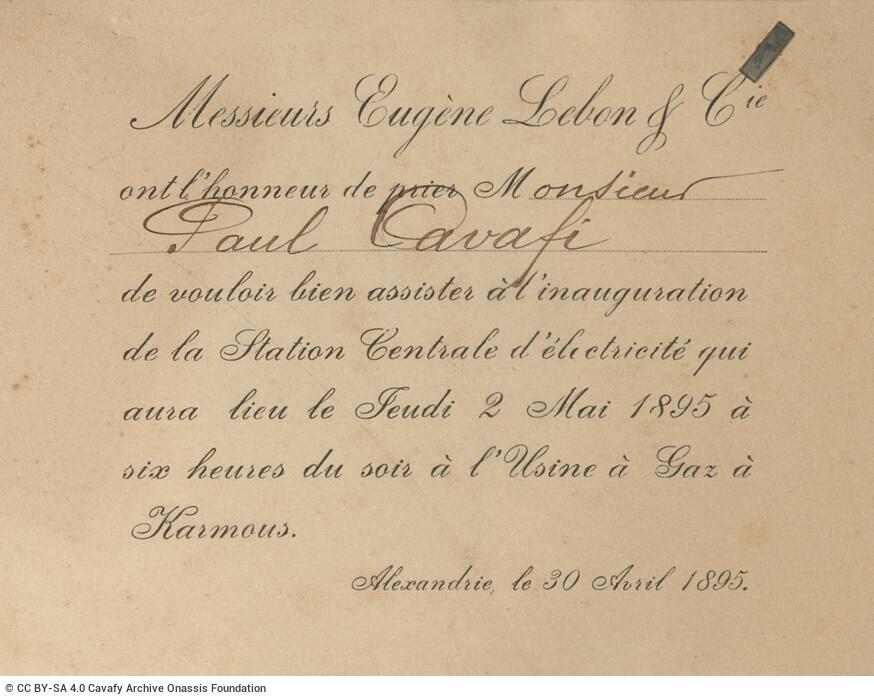 Messieurs Eugène Lebon & Cie
ont l'honneur de prier Monsieur
Paul Cavafi
de vouloir bien assister à l'inauguration
de la Station Centrale d'électricité qui
aura lieu le Jeudi 2 Mai 1895 à
six heures du soir à l'Usine à Gaz à
Karmous.
Alexandrie, le 30 Avril 1895.
© CC BY-SA 4.0 Cavafy Archive Onassis Foundation